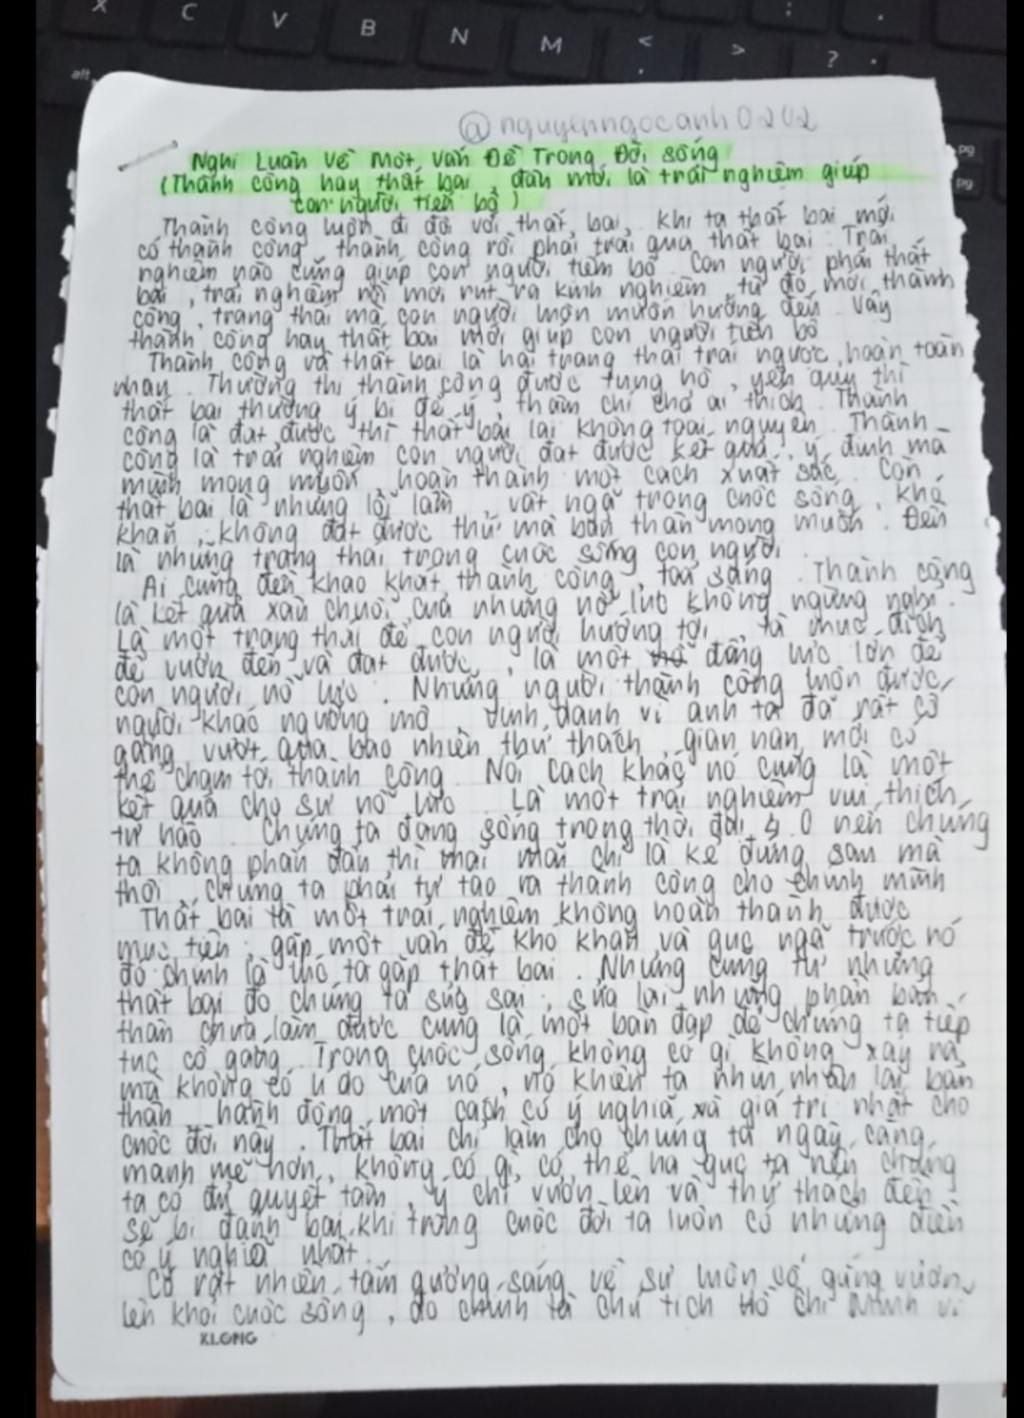 X C V B N M < > ? .
alt
pg
pg
@nguyenngocanh0202
Nghị Luận Về Một Vấn Đề Trong Đời sống
(Thành công hay thất bại, đâu mới là trải nghiệm giúp
con người tiến bộ)
Thành công luôn đi đôi với thất bại, khi ta thất bại mới
có thành công, thành công rồi phải trải qua thất bại. Trải
nghiệm nào cũng giúp con người tiếm bộ. Con người phải thất
bại, trải nghiệm rồi mới rút ra kinh nghiệm, từ đó mới thành
công, trạng thái mà con người luôn muốn hướng đến. Vậy
thành công hay thất bại mới giúp con người tiến bộ
Thành công và thất bại là hai trạng thái trái ngược hoàn toàn
nhau. Thường thì thành công được tung hô, yêu quý thì
thất bại thường ý bị để ý, thậm chí chả ai thích. Thành
công là đạt được thì thất bại lại không toại nguyện. Thành
công là trải nghiệm con người đạt được kết quả, ý định mà
mình mong muốn, hoàn thành một cách xuất sắc. Còn
thất bại là những lỗi lầm, vất ngã trong cuộc sống, khó
khăn, không đạt được thứ mà bản thân mong muốn. Đều
là những trạng thái trong cuộc sống con người.
Ai cũng đều khao khát thành công, toả sáng. Thành công
là kết quả xâu chuỗi của những nỗ lực không ngừng nghỉ.
Là một trạng thái để con người hướng tới, là mục đích
để vươn đến và đạt được, là một động lực lớn để
con người nỗ lực. Những người thành công luôn được
người khác ngưỡng mộ, vinh danh vì anh ta đã rất cố
gắng vượt qua bao nhiên thử thách, gian nan mới có
thể chạm tới thành công. Nói cách khác nó cũng là một
kết quả cho sự nỗ lực. Là một trải nghiệm vui thích,
tự hào. Chúng ta đang sống trong thời đại 4.0 nên chúng
ta không phấn đấu thì mãi mãi chỉ là kẻ đứng sau mà
thôi, chúng ta phải tự tạo ra thành công cho chính mình
Thất bại là một trải nghiệm không hoàn thành được
mục tiêu, gặp một vấn đề khó khăn và gục ngã trước nó
đó chính là lúc ta gặp thất bại. Nhưng cũng từ những
thất bại đó chúng ta sửa sai, sửa lại những phần bản
thân chưa làm được cũng là một bàn đạp để chúng ta tiếp
tục cố gắng. Trong cuộc sống không có gì không xảy ra
mà không có lí do của nó, nó khiến ta nhìn nhận lại bản
thân, hành động một cách có ý nghĩa và giá trị nhất cho
cuộc đời này. Thất bại chỉ làm cho chúng ta ngày càng
mạnh mẽ hơn, không có gì có thể hạ gục ta nếu chúng
ta có đủ quyết tâm, ý chí vươn lên và thử thách đều
sẽ bị đánh bại khi trong cuộc đời ta luôn có những điều
có ý nghĩa nhất.
Có rất nhiều tấm gương sáng về sự luôn cố gắng vươn
lên khỏi cuộc sống, đó chính là chủ tịch Hồ Chí Minh vĩ
KLONG